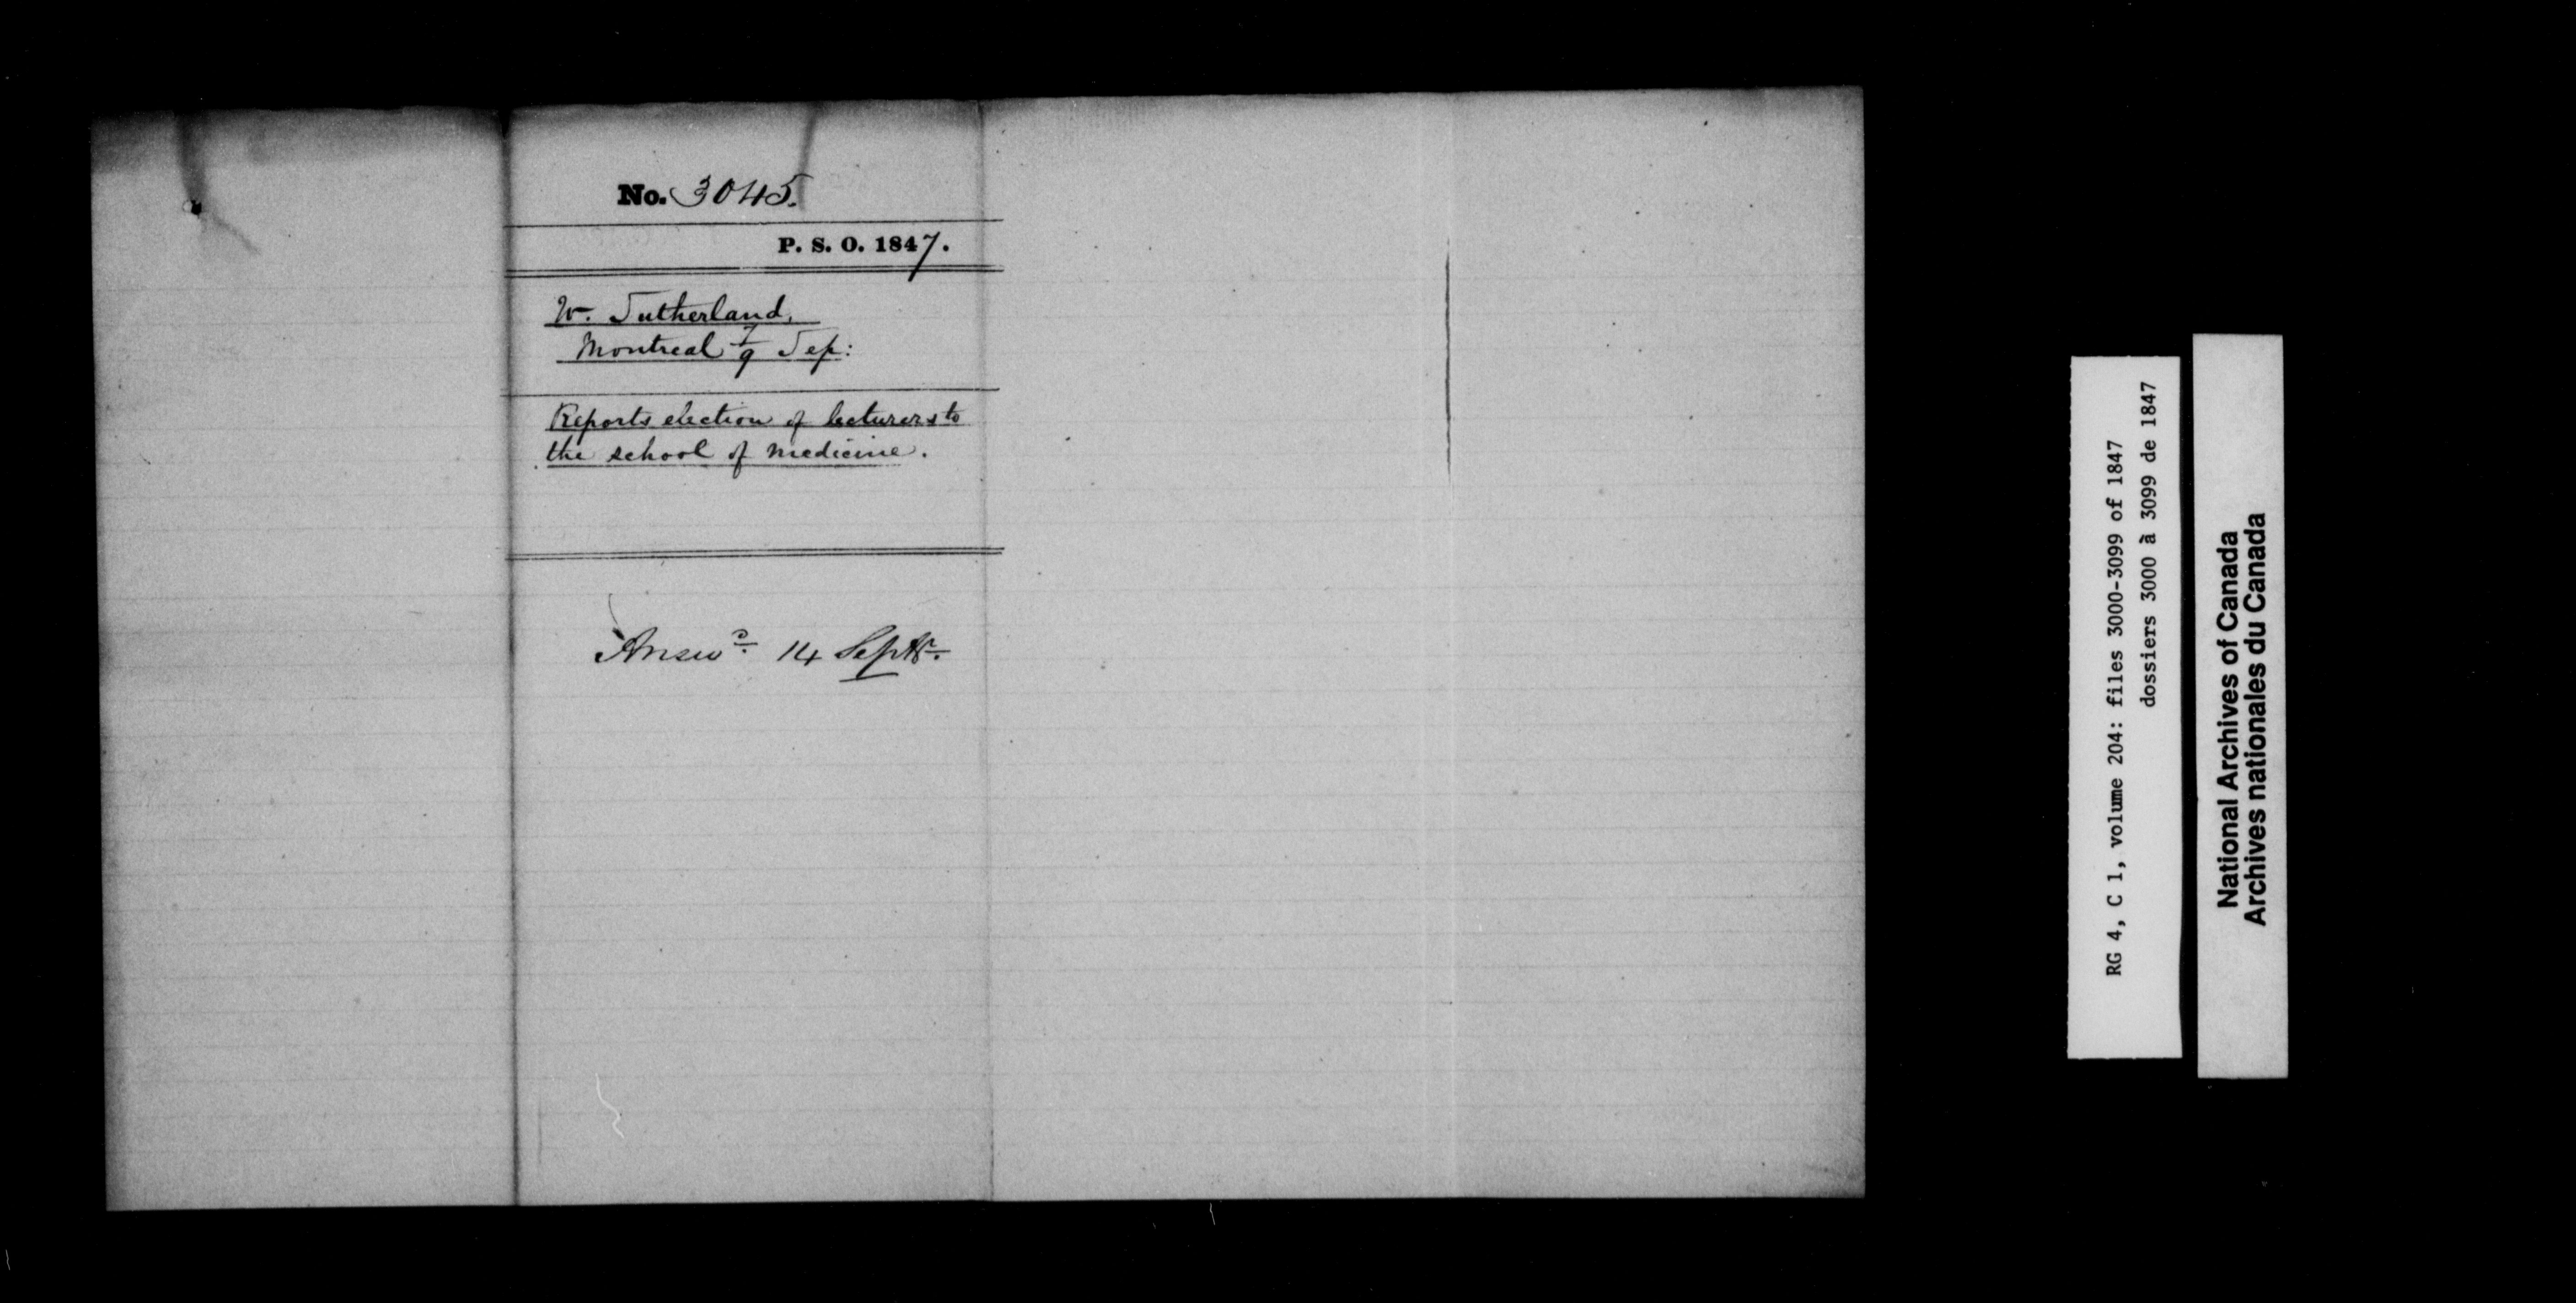 No. 3045.
P. S. O. 1847.
W. Sutherland,
Montreal 7/9 Sep:
Reports election of lecturers to
the school of medicine.
Answd. 14 Septr.
RG 4, C 1, volume 204: files 3000-3099 of 1847
dossiers 3000 à 3099 de 1847
National Archives of Canada
Archives nationales du Canada